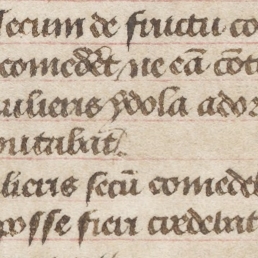 secum de fructu co
comedēt ne eā cōt
ulieris ydola ador
putabāt
lieris secū comede
posse fieri credebat